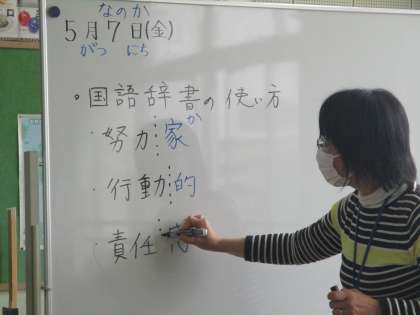 なのか
5月7日(金)
がつ にち
。国語辞書の使い方
か
・努力家
・行動的
・責任